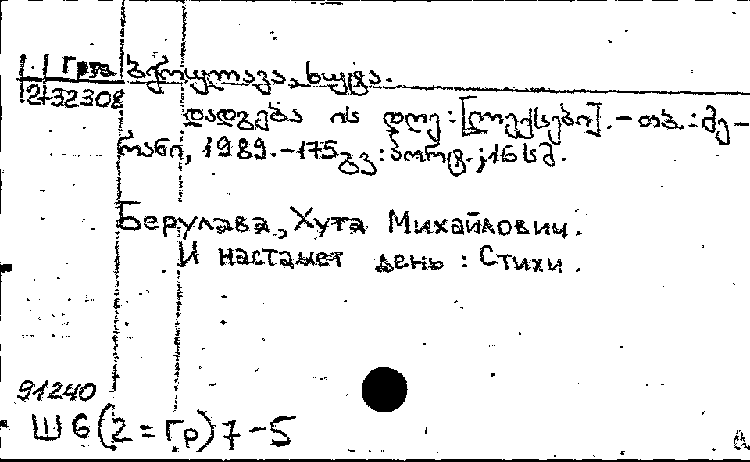 Груз ბერულავა, ხუტა.
2-32308
დადგება ის დღე: [ლექსები]. - თბ.: მე-
რანი, 1989. - 175 გვ: პორტ.; 16 სმ.
Берулава, Хута Михайлович.
И настанет день : Стихи.
91240
Ш6(2=Гр)7-5